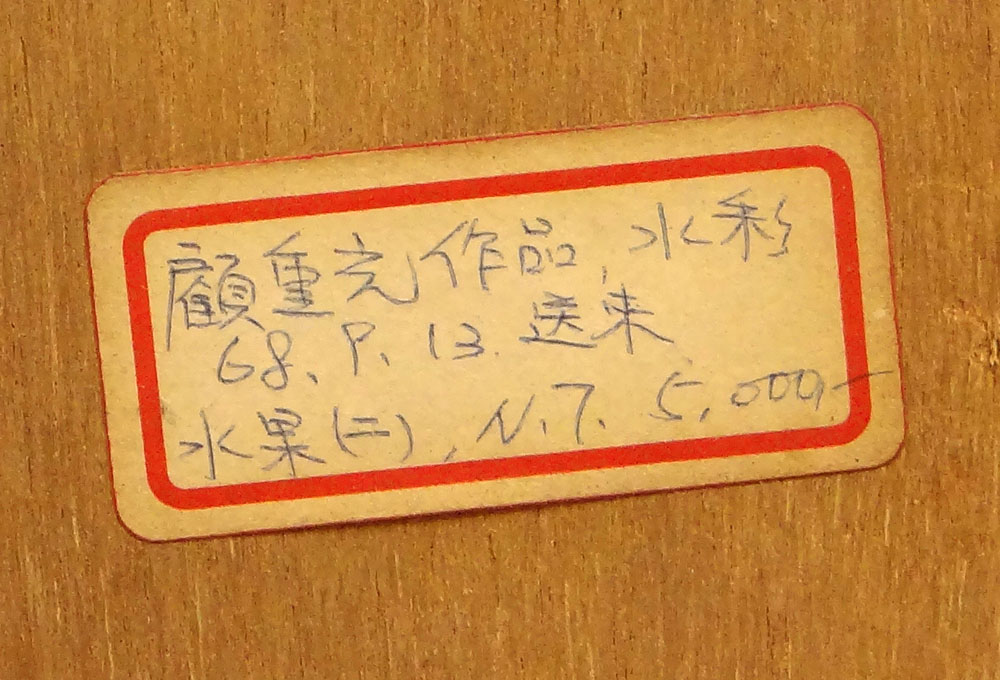 顧重光作品, 水彩
68、9、13. 送来
水果(二), N.T. 5,000.—